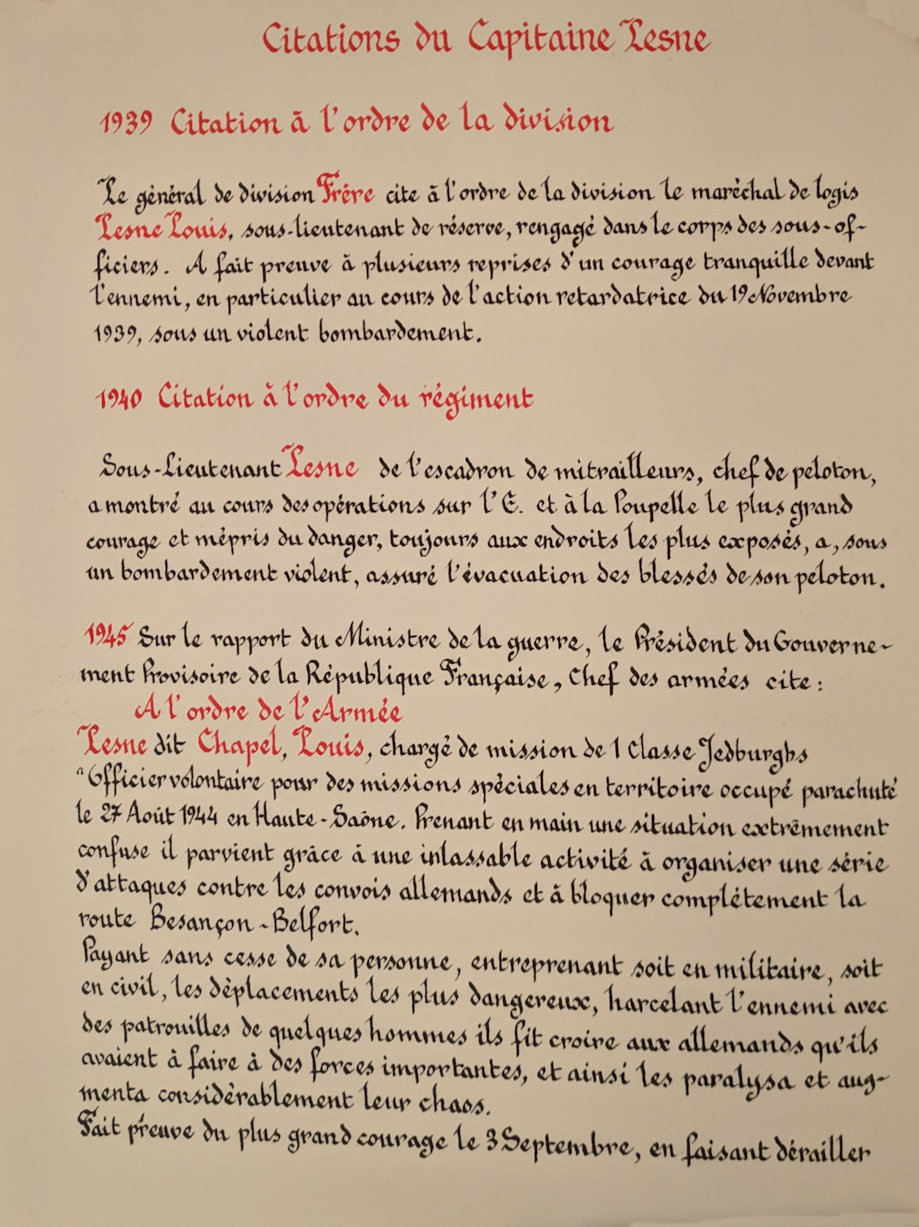 Citations du Capitaine Lesne
1939 Citation à l'ordre de la division
Le général de division Frère cite à l'ordre de la division le maréchal de logis
Lesne Louis, sous-lieutenant de réserve, rengagé dans le corps des sous-of-
ficiers. A fait preuve à plusieurs reprises d'un courage tranquille devant
l'ennemi, en particulier au cours de l'action retardatrice du 19 Novembre
1939, sous un violent bombardement.
1940 Citation à l'ordre du régiment
Sous-Lieutenant Lesne de l'escadron de mitrailleurs, chef de peloton,
a montré au cours des opérations sur l'E. et à la Poupelle le plus grand
courage et mépris du danger, toujours aux endroits les plus exposés, a, sous
un bombardement violent, assuré l'évacuation des blessés de son peloton.
1945 Sur le rapport du Ministre de la guerre, le Président du Gouverne-
ment Provisoire de la République Française, Chef des armées cite :
A l'ordre de l'Armée
Lesne dit Chapel, Louis, chargé de mission de 1 Classe Jedburghs
"Officier volontaire pour des missions spéciales en territoire occupé parachuté
le 27 Août 1944 en Haute-Saône. Prenant en main une situation extrêmement
confuse il parvient grâce à une inlassable activité à organiser une série
d'attaques contre les convois allemands et à bloquer complétement la
route Besançon-Belfort.
Payant sans cesse de sa personne, entreprenant soit en militaire, soit
en civil, les déplacements les plus dangereux, harcelant l'ennemi avec
des patrouilles de quelques hommes ils fit croire aux allemands qu'ils
avaient à faire à des forces importantes, et ainsi les paralysa et aug-
menta considérablement leur chaos.
Fait preuve du plus grand courage le 3 Septembre, en faisant dérailler